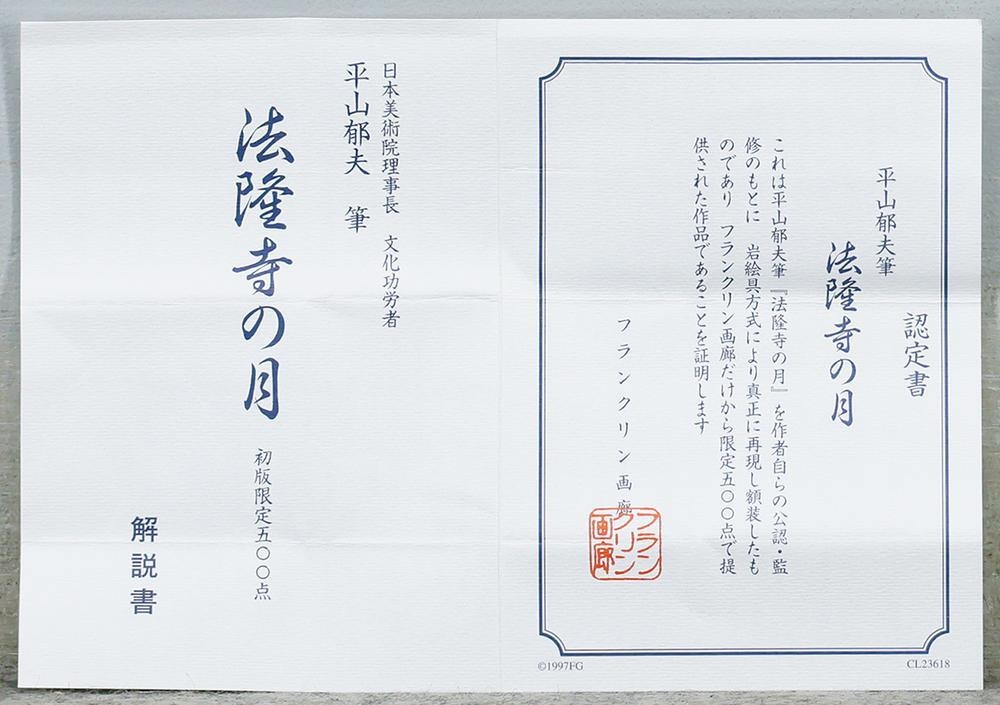 認定書
平山郁夫筆
法隆寺の月
これは平山郁夫筆『法隆寺の月』を作者自らの公認・監
修のもとに　岩絵具方式により真正に再現し額装したも
のであり　フランクリン画廊だけから限定五〇〇点で提
供された作品であることを証明します
フランクリン画廊
フラン
クリン
画廊
©1997FG
CL23618
日本美術院理事長　文化功労者
平山郁夫　筆
法隆寺の月
初版限定五〇〇点
解説書